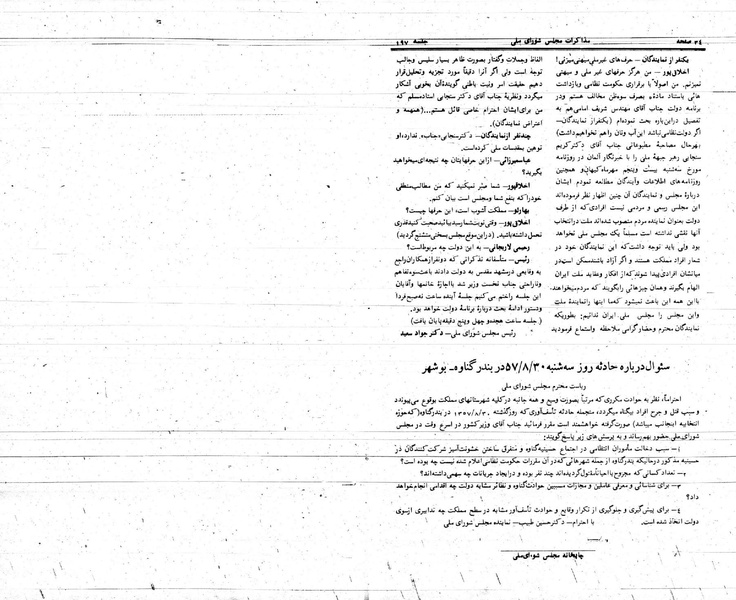 صفحه ۳۴
مذاکرات مجلس شورای ملی
جلسه ۱۹۷
یکنفر از نمایندگان – حرف‌های غیرملی میهنی میزنی!
اخلاق‌پور – من هرگز حرفهای غیر ملی و میهنی
نمیزنم. من اصولا با برقراری حکومت نظامی وبازداشت
هائی باستناد مادهٔ ۵ بصرف سوءظن مخالف هستم ودر
برنامه دولت جناب آقای مهندس شریف امامی هم به
تفصیل دراین‌باره بحث نموده‌ام (یکنفراز نمایندگان–
اگر دولت‌نظامی‌نباشد این‌آب ونان راهم نخواهیم‌داشت)
بهرحال مصاحبهٔ مطبوعاتی جناب آقای دکترکریم
سنجابی رهبر جبههٔ ملی را با خبرنگار آلمان در روزنامه
مورخ سه‌شنبه بیست وپنجم مهرماه‌کیهان‌و همچنین
روزنامه‌های اطلاعات وآیندگان مطالعه نمودم ایشان
دربارهٔ مجلس و نمایندگان آن چنین اظهار نظر فرموده‌اند
این مجلس رسمی و مردمی نیست افرادی‌که از طرف
دولت بعنوان نماینده مردم منصوب شده‌اند ملت درانتخاب
آنها نقشی نداشته است مسلماً یک مجلس ملی نخواهد
بود ولی باید توجه داشت‌که این نمایندگان خود در
شمار افراد مملکت هستند و اگر آزاد باشندممکن است‌در
میانشان افرادی‌پیدا شوندکه‌از افکار وعقاید ملت ایران
الهام بگیرند وهمان چیزهائی رابگویند که مردم‌میخواهند.
بااین همه این باعث نمیشود که‌ما اینها رانمایندهٔ ملت
واین مجلس را مجلس ملی ایران ندانیم: بطوریکه
نمایندگان محترم وحضارگرامی ملاحظه واستماع فرمودید
الفاظ وجملات وگفتار بصورت ظاهر بسیار سلیس وجالب
توجهٔ است ولی اگر آنرا دقیقاً مورد تجزیه وتحلیل‌قرار
دهیم حقیقت امر ونیت باطنی گویندهٔ‌آن بخوبی آشکار
میگردد ونظریهٔ جناب آقای دکتر سنجابی استادمسلم که
من برای‌ایشان احترام خاصی قائل هستم...(همهمه و
اعتراض نمایندگان).
چندنفر ازنمایندگان– دکترسنجابی«جناب». ندارد،او
توهین بمقدسات ملی کرده‌است.
عباسمیرزائی– ازاین حرفهایتان چه نتیجه‌ای‌میخواهید
بگیرید؟
اخلاقپور– شما صبر نمیکنید که من مطالب‌منطقی
خودراکه بنفع شما ومجلس است بیان کنم.
بهادلو– مملکت آشوب است، این حرفها چیست؟
اخلاق‌پور– وقتی نوبت‌شمارسیدبیائیدصحبت کنیدقدری
تحمل داشته‌باشید. (دراین‌موقع‌مجلس‌بسختی‌متشنج‌گردید)
رحیمی لاریجانی– به این دولت چه مربوطاست؟
رئیس– متأسفانه تذکراتی که دونفرازهمکاران‌راجع
به وقایعی درمشهد مقدس به دولت دادند باعث‌سوءتفاهم
وناراحتی جناب نخست وزیر شد بااجازهٔ خانمها وآقایان
این جلسه راختم می‌کنیم جلسهٔ آینده ساعت نه‌صبح‌فردا
ودستور ادامهٔ بحث دربارهٔ برنامهٔ دولت خواهد بود.
(جلسه ساعت هجده‌و چهل وپنج دقیقه‌پایان یافت)
رئیس مجلس شورای ملی – دکتر جواد سعید
سئوال درباره حادثه روز سه‌شنبه ۵۷/۸/۳۰ در بندر گناوه – بوشهر
ریاست محترم مجلس شورای ملی
احتراماً، نظر به حوادث مکرری که مرتباً بصورت وسیع و همه جانبه درکلیه شهرستانهای مملکت بوقوع می‌پیوندد
و سبب قتل و جرح افراد بیگناه میگردد، منجمله حادثه تأسف‌آوری که روزگذشته ۱۳۵۷/۸/۳۰ در بندرگناوه(که‌حوزه
انتخابیه اینجانب میباشد) صورت‌گرفته خواهشمند است مقرر فرمائید جناب آقای وزیرکشور در اسرع وقت در مجلس
شورای‌ملی حضور بهم‌رساند و به پرسش های زیر پاسخ‌گویند:
۱– سبب دخالت مأموران انتظامی در اجتماع حسینیه‌گناوه و متفرق ساختن خشونت‌آمیز شرکت‌کنندگان در
حسینیه مذکور درحالیکه بندرگناوه از جمله شهرهائی که‌در آن مقررات حکومت نظامی‌اعلام شده نیست چه بوده است؟
۲– تعداد کسانی که مجروح یااحیاناً‌مقتول‌گردیده‌اند چند نفر بوده و درایجاد جریانات چه سهمی‌داشته‌اند؟
۳– برای شناسائی و معرفی عاملین و مجازات مسببین حوادث‌گناوه و نظائر مشابه دولت چه اقدامی انجام‌خواهد
داد؟
۴– برای پیش‌گیری و جلوگیری از تکرار وقایع و حوادث تأسف‌آور مشابه در سطح مملکت چه تدابیری ازسوی
دولت اتخاذ شده است.
با احترام– دکترحسین طبیب– نماینده مجلس شورای ملی
چاپخانه مجلس شورای‌ملی